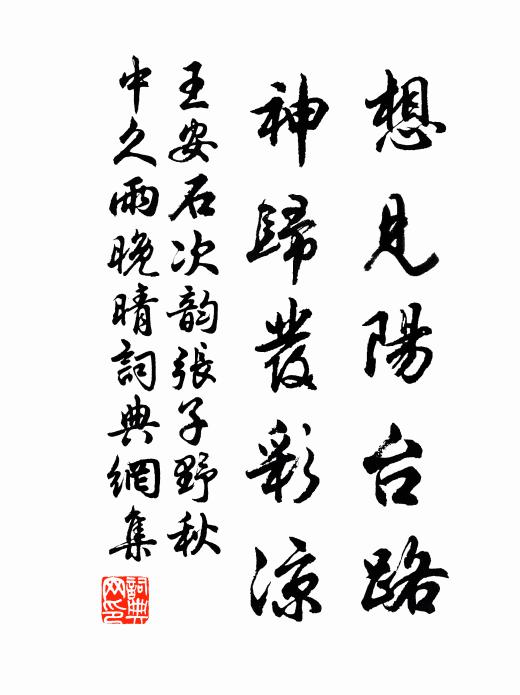 想見陽台路
神歸發彩涼
王安石次韵張子野秋
中久雨晚晴詞典網集
詞典
网印